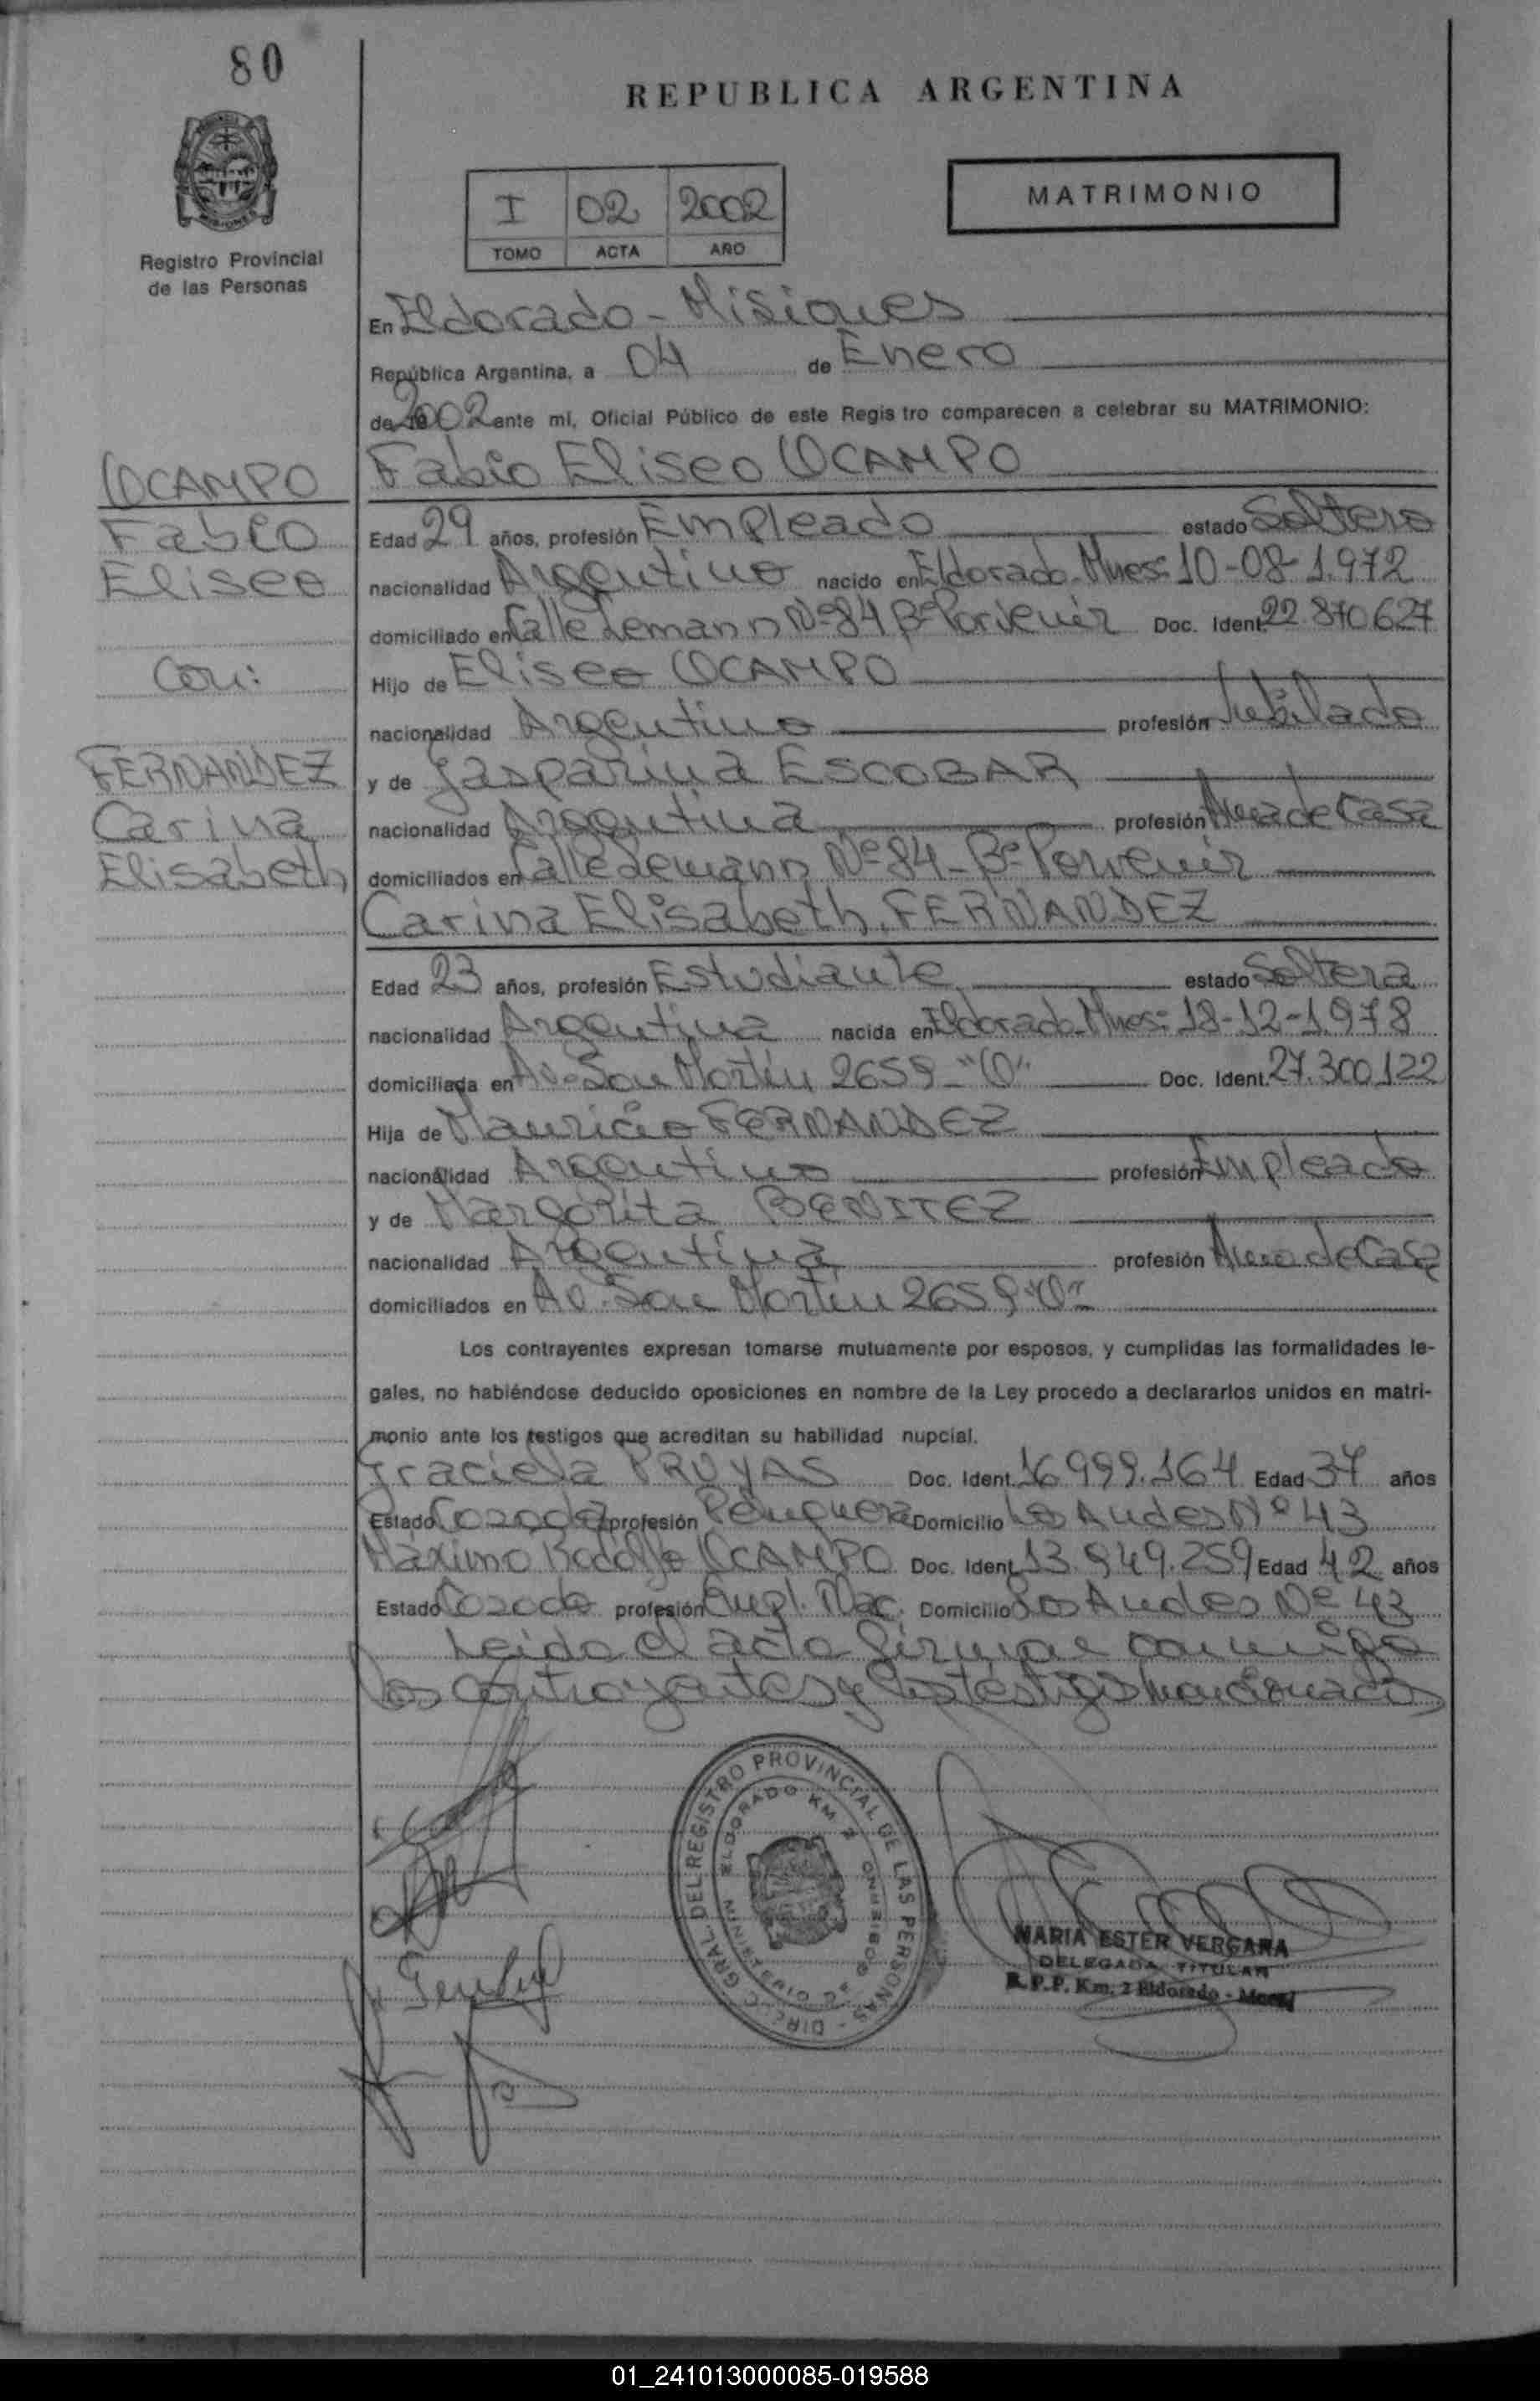 80
REPUBLICA ARGENTINA
I 02 2002
TOMO ACTA AÑO
MATRIMONIO
Registro Provincial
de las Personas
En Eldorado - Misiones
República Argentina, a 04 de Enero
de 2002 ante mí, Oficial Público de este Registro comparecen a celebrar su MATRIMONIO:
OCAMPO
Fabio
Eliseo
Con:
FERNANDEZ
Carina
Elisabeth
Fabio Eliseo OCAMPO
Edad 29 años, profesión Empleado estado Soltero
nacionalidad Argentino nacido en Eldorado-Mnes- 10-08-1.972
domiciliado en Calle Lemann Nº 84 Bº Porvenir Doc. Ident. 22.870.627
Hijo de Eliseo OCAMPO
nacionalidad Argentino profesión Jubilado
y de Gasparina ESCOBAR
nacionalidad Argentina profesión Ama de Casa
domiciliados en Calle Lemann Nº 84 - Bº Porvenir
Carina Elisabeth FERNANDEZ
Edad 23 años, profesión Estudiante estado Soltera
nacionalidad Argentina nacida en Eldorado-Mnes- 18-12-1.978
domiciliada en Av. San Martín 2659 - "O" Doc. Ident. 27.300.122
Hija de Mauricio FERNANDEZ
nacionalidad Argentino profesión Empleado
y de Margarita BENITEZ
nacionalidad Argentina profesión Ama de Casa
domiciliados en Av. San Martín 2659 "O"
Los contrayentes expresan tomarse mutuamente por esposos, y cumplidas las formalidades le-
gales, no habiéndose deducido oposiciones en nombre de la Ley procedo a declararlos unidos en matri-
monio ante los testigos que acreditan su habilidad nupcial.
Graciela PRUYAS Doc. Ident. 16.999.164 Edad 37 años
Estado Casada profesión Peluquera Domicilio Los Andes Nº 43
Máximo Rodolfo OCAMPO Doc. Ident. 13.949.259 Edad 42 años
Estado Casado profesión Empl. Domicilio Los Andes Nº 43
Leída el acta firman conmigo
los contrayentes y los testigos mencionados
DIREC. GRAL. DEL REGISTRO PROVINCIAL DE LAS PERSONAS
ELDORADO KM 2
MARIA ESTER VERGARA
DELEGADA TITULAR
R.P.P. Km. 2 Eldorado - Mnes
01_241013000085-019588